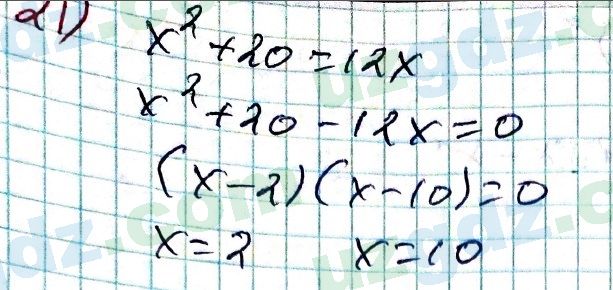 21)
x² + 20 = 12x
x² + 20 - 12x = 0
(x - 2)(x - 10) = 0
x = 2 x = 10
uzgdz.com